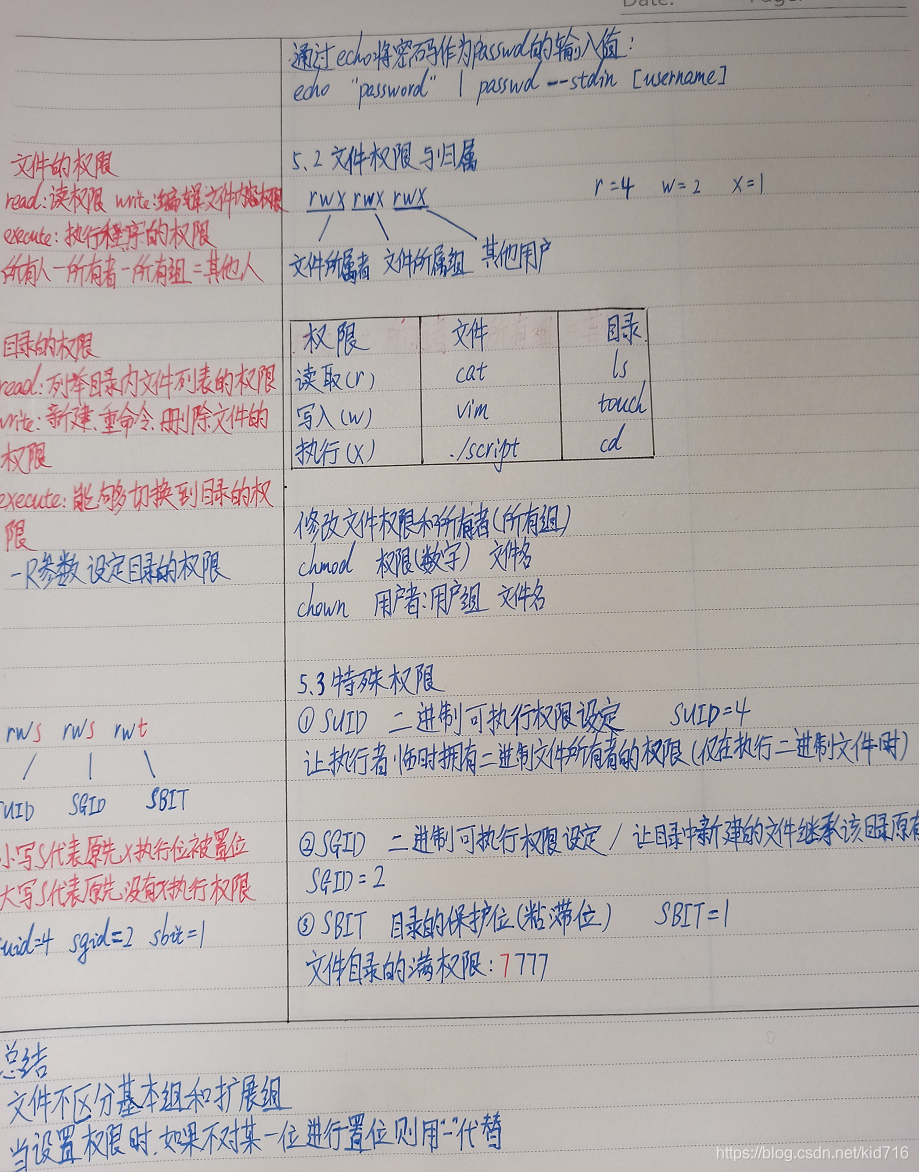 Date:
Page:
通过echo将密码作为passwd的输入值:
echo "password" | passwd --stdin [username]
文件的权限
read:读权限 write:编辑文件内容权限
execute:执行程序的权限
所有人-所有者-所有组=其他人
5.2 文件权限与归属
rwx rwx rwx
r=4 w=2 x=1
文件所属者 文件所属组 其他用户
目录的权限
read:列举目录内文件列表的权限
write:新建、重命令、删除文件的
权限
execute:能够切换到目录的权
限
-R参数 设定目录的权限
权限 文件 目录
读取(r) cat ls
写入(w) vim touch
执行(x) ./script cd
修改文件权限和所有者(所有组)
chmod 权限(数字) 文件名
chown 用户者:用户组 文件名
rws rws rwt
SUID SGID SBIT
小写s代表原先x执行位被置位
大写S代表原先没有x执行权限
suid=4 sgid=2 sbit=1
5.3 特殊权限
① SUID 二进制可执行权限设定 SUID=4
让执行者临时拥有二进制文件所有者的权限(仅在执行二进制文件时)
② SGID 二进制可执行权限设定 / 让目录中新建的文件继承该目录原有
SGID=2
③ SBIT 目录的保护位(粘滞位) SBIT=1
文件目录的满权限:7777
总结
文件不区分基本组和扩展组
当设置权限时,如果不对某一位进行置位则用"-"代替
https://blog.csdn.net/kid716